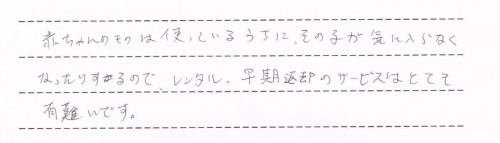 赤ちゃんのモノは使っているうちに、その子が気に入らなく
なったりするので、レンタル、早期返却のサービスはとても
有難いです。